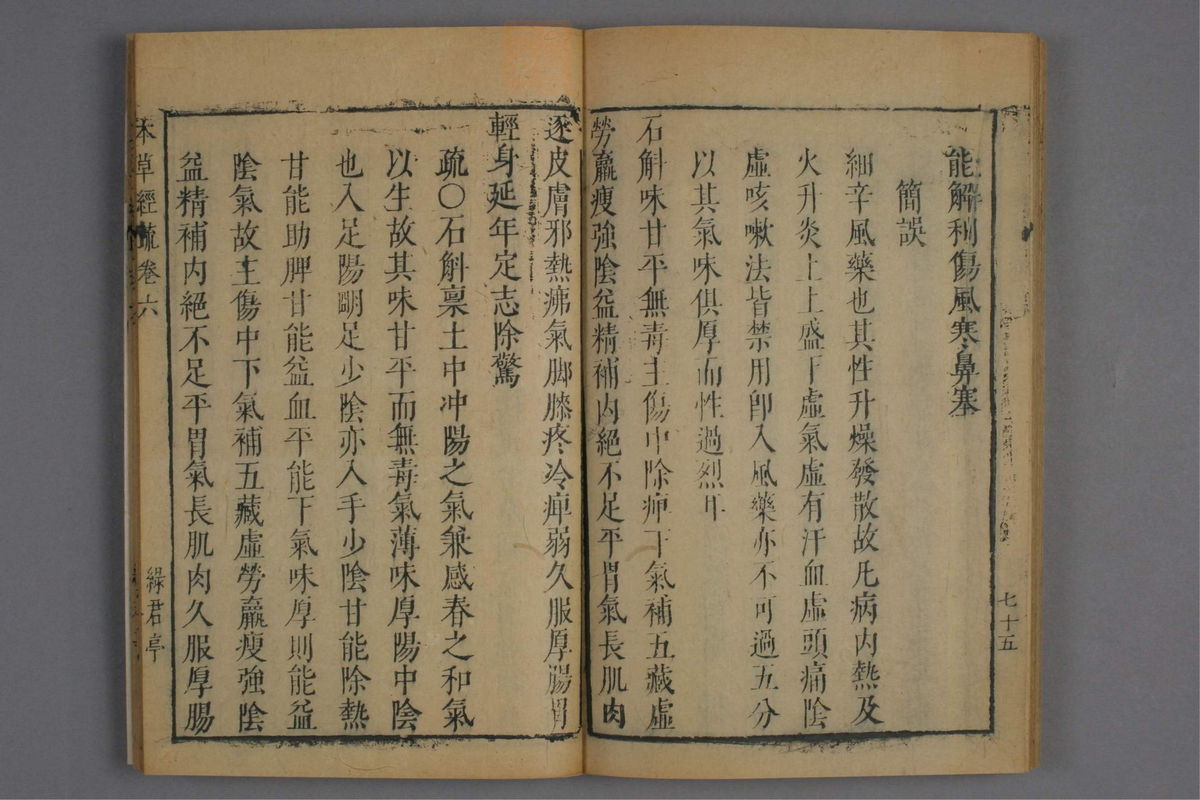 能解利傷風寒鼻塞
簡誤
細辛風藥也其性升燥發散故凡病内熱及
火升炎上上盛下虛氣虛有汗血虛頭痛陰
虛咳嗽法皆禁用卽入風藥亦不可過五分
以其氣味俱厚而性過烈耳
石斛味甘平無毒主傷中除痹下氣補五藏虛
勞羸瘦強陰益精補内絕不足平胃氣長肌肉
七十五
逐皮膚邪熱疿氣脚膝疼冷痹弱久服厚腸胃
輕身延年定志除驚
疏〇石斛稟土中冲陽之氣兼感春之和氣
以生故其味甘平而無毒氣薄味厚陽中陰
也入足陽朙足少陰亦入手少陰甘能除熱
甘能助脾甘能益血平能下氣味厚則能益
陰氣故主傷中下氣補五藏虛勞羸瘦強陰
益精補内絕不足平胃氣長肌肉久服厚腸
本草經疏卷六
綠君亭